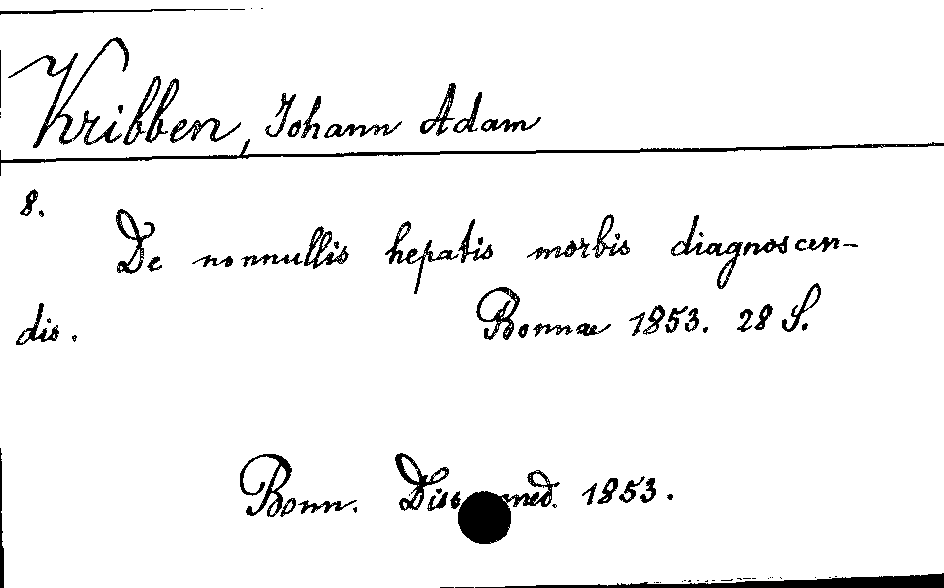 Kribben, Johann Adam
8.
De nonnullis hepatis morbis diagnoscen-
dis. Bonnae 1853. 28 S.
Bonn. Diss. med. 1853.